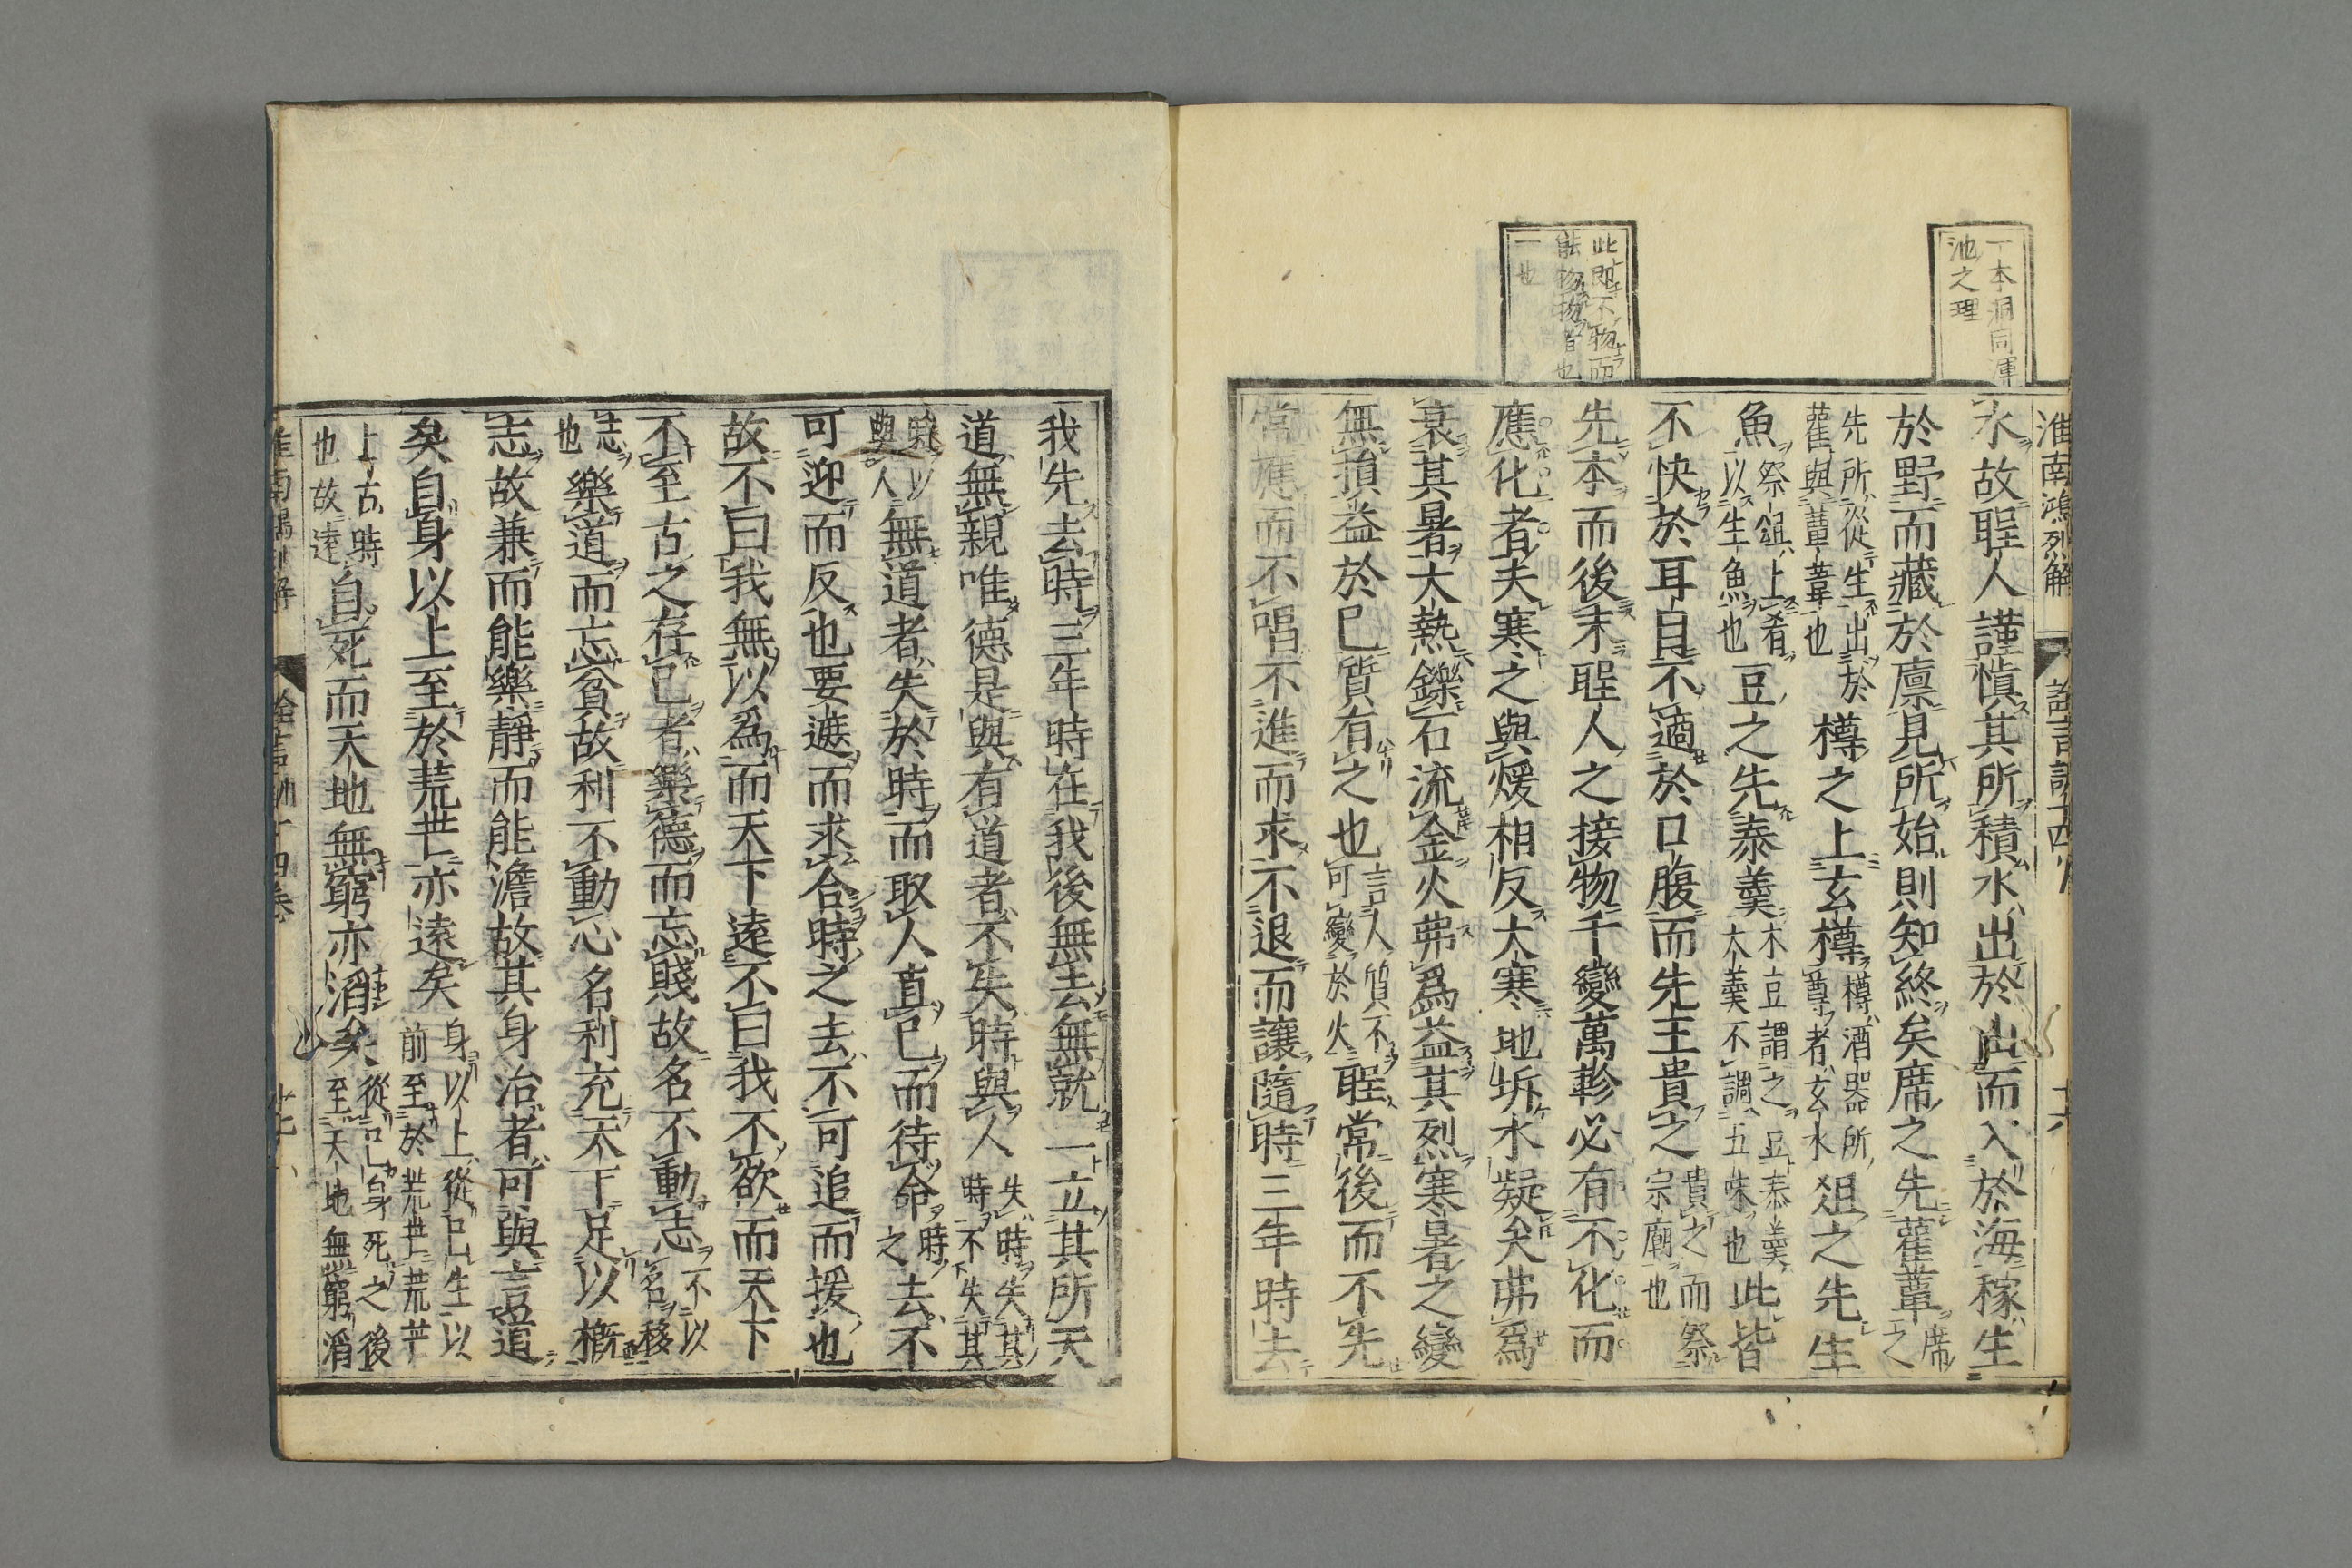 一本洞同渾
池之理
此即不物而
能物物者也
一也
淮南鴻烈解 詮言訓十四 十六
水故聖人謹愼其所積水出於山而入於海稼生
於野而藏於廩見所始則知終矣席之先雚蕇席之
先所從生出於
雚與蕇葦也
樽之上玄樽樽酒器所
尊者玄水
俎之先生
魚祭俎上肴
以生魚也
豆之先泰羹木豆謂之豆泰羹
大羹不調五味也
此皆
不快於耳目不適於口腹而先王貴之貴之而祭
宗廟也
先本而後末聖人之接物千變萬軫必有不化而
應化者夫寒之與煖相反大寒地坼水凝火弗爲
衰其暑大熱鑠石流金火弗爲益其烈寒暑之變
無損益於己質有之也言人質不
可變於火
聖常後而不先
常應而不唱不進而求不退而讓隨時三年時去
我先去時三年時在我後無去無就一立其所天
道無親唯德是與有道者不失時與人失時失其
時不失其
時以
與人
無道者失於時而取人直己而待命時
之去不
可迎而反也要遮而求合時之去不可追而援也
故不曰我無以爲而天下遠不曰我不欲而天下
不至古之存己者樂德而忘賤故名不動志不以
名移
志
也
樂道而忘貧故利不動心名利充天下足以概
志故兼而能樂靜而能澹故其身治者可與言道
矣自身以上至於荒芒亦遠矣身以上從己生以
前至於荒芒荒芒
上古時
也故遠
自死而天地無窮亦滔矣從己身死之後
至天地無窮滔
淮南鴻烈解 詮言訓十四卷